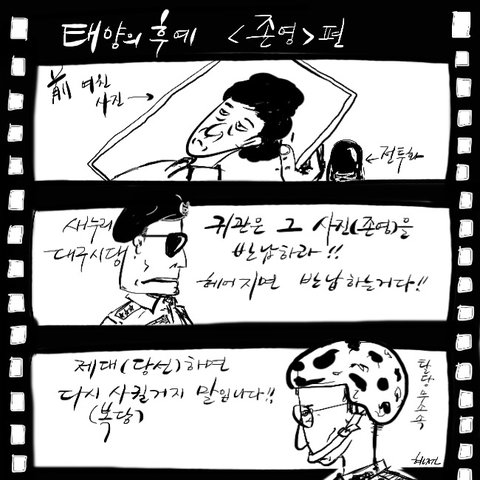 태양의 후예 <존영>편
前 여친
사진→
←전투화
새누리
대구시당
귀관은 그 사진(존영)을
반납하라!!
헤어지면 반납하는거다!!
제대(당선)하면
다시 사킬거지 말입니다!!
(복당)
탈당 무소속